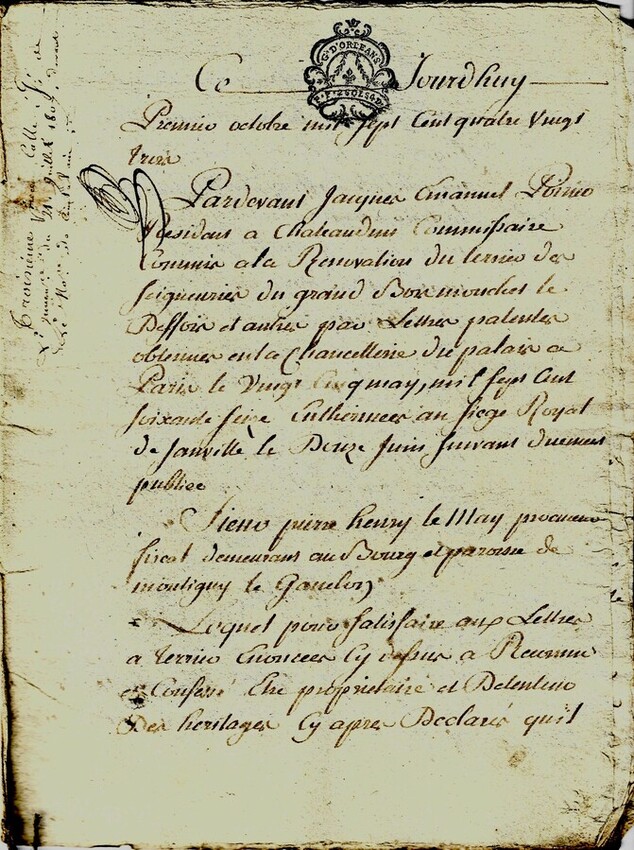 G^t D'ORLEANS
Ce Jourdhuy
Premier octobre mil sept Cent quatre Vingt
trois
Pardevant Jacques Emanuel
Residant a Chateaudun Commissaire
Commis a la Renovation du terrier des
seigneuries du grand Bois mouchet le
Deffois et autres par Lettres patentes
obtenues en la Chancellerie du palais a
Paris le Vingt Cinq may, mil sept Cent
soixante seize Entherinees au siege Royal
de Janville le Douze Juin suivant duement
publiee
Sieur pierre henry le May procureur
fiscal demeurant au Bourg et paroisse de
montigny le Ganelon
Lequel pour satisfaire aux Lettres
a terrier Enoncees Cy dessus a Reconnu
et Confessé Etre proprietaire et Detenteur
Des heritages Cy apres Declarés quil